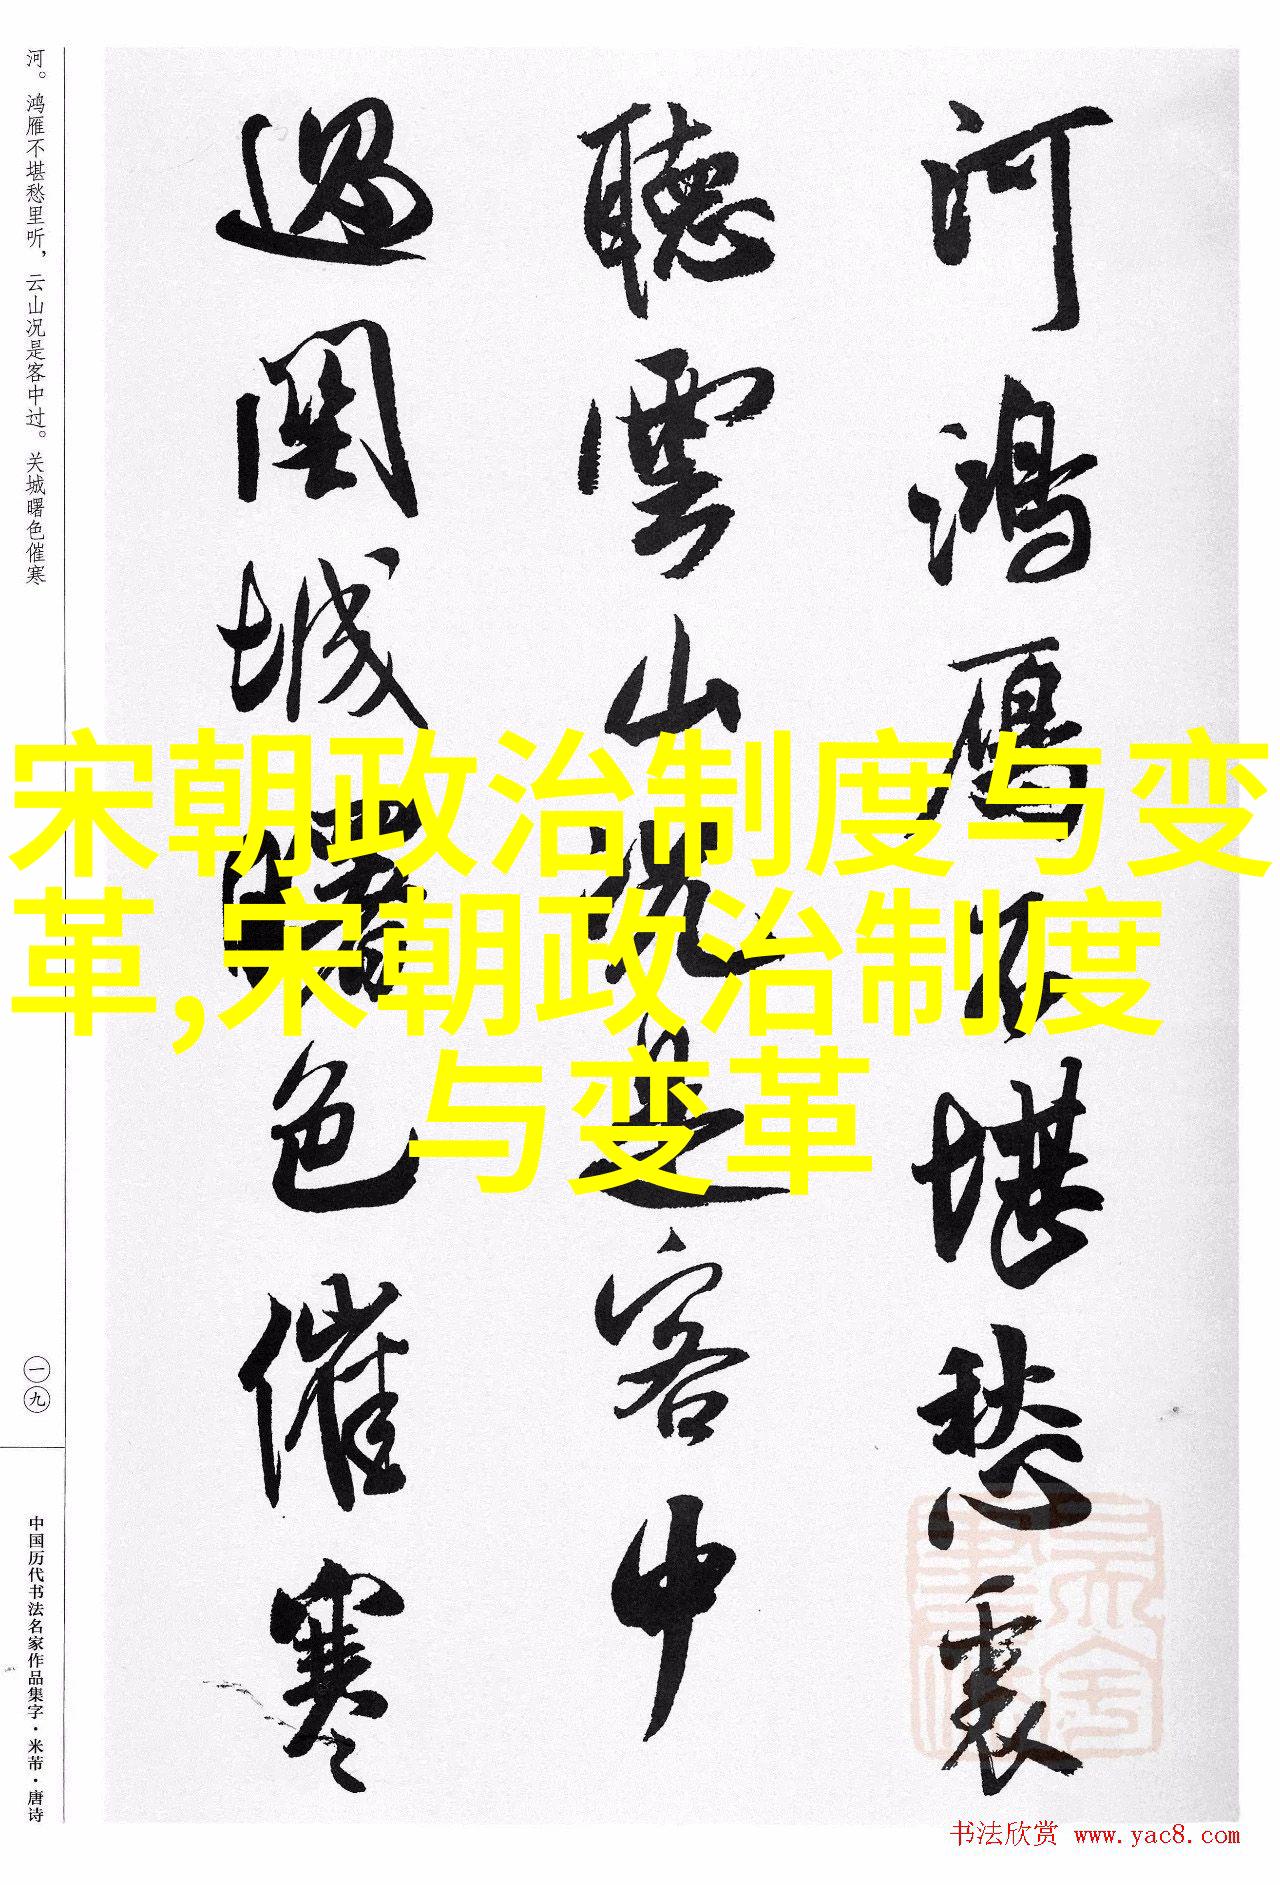 河鴻雁不堪愁裏
聽雲山況是客中
過關城曙色催寒
宋朝政治制度与变
革,宋朝政治制度
与变革
河。鸿雁不堪愁里听，云山况是客中过。关城曙色催寒
一九
中国历代书法名家作品集字·米芾·唐诗
书法欣赏 www.yac8.com